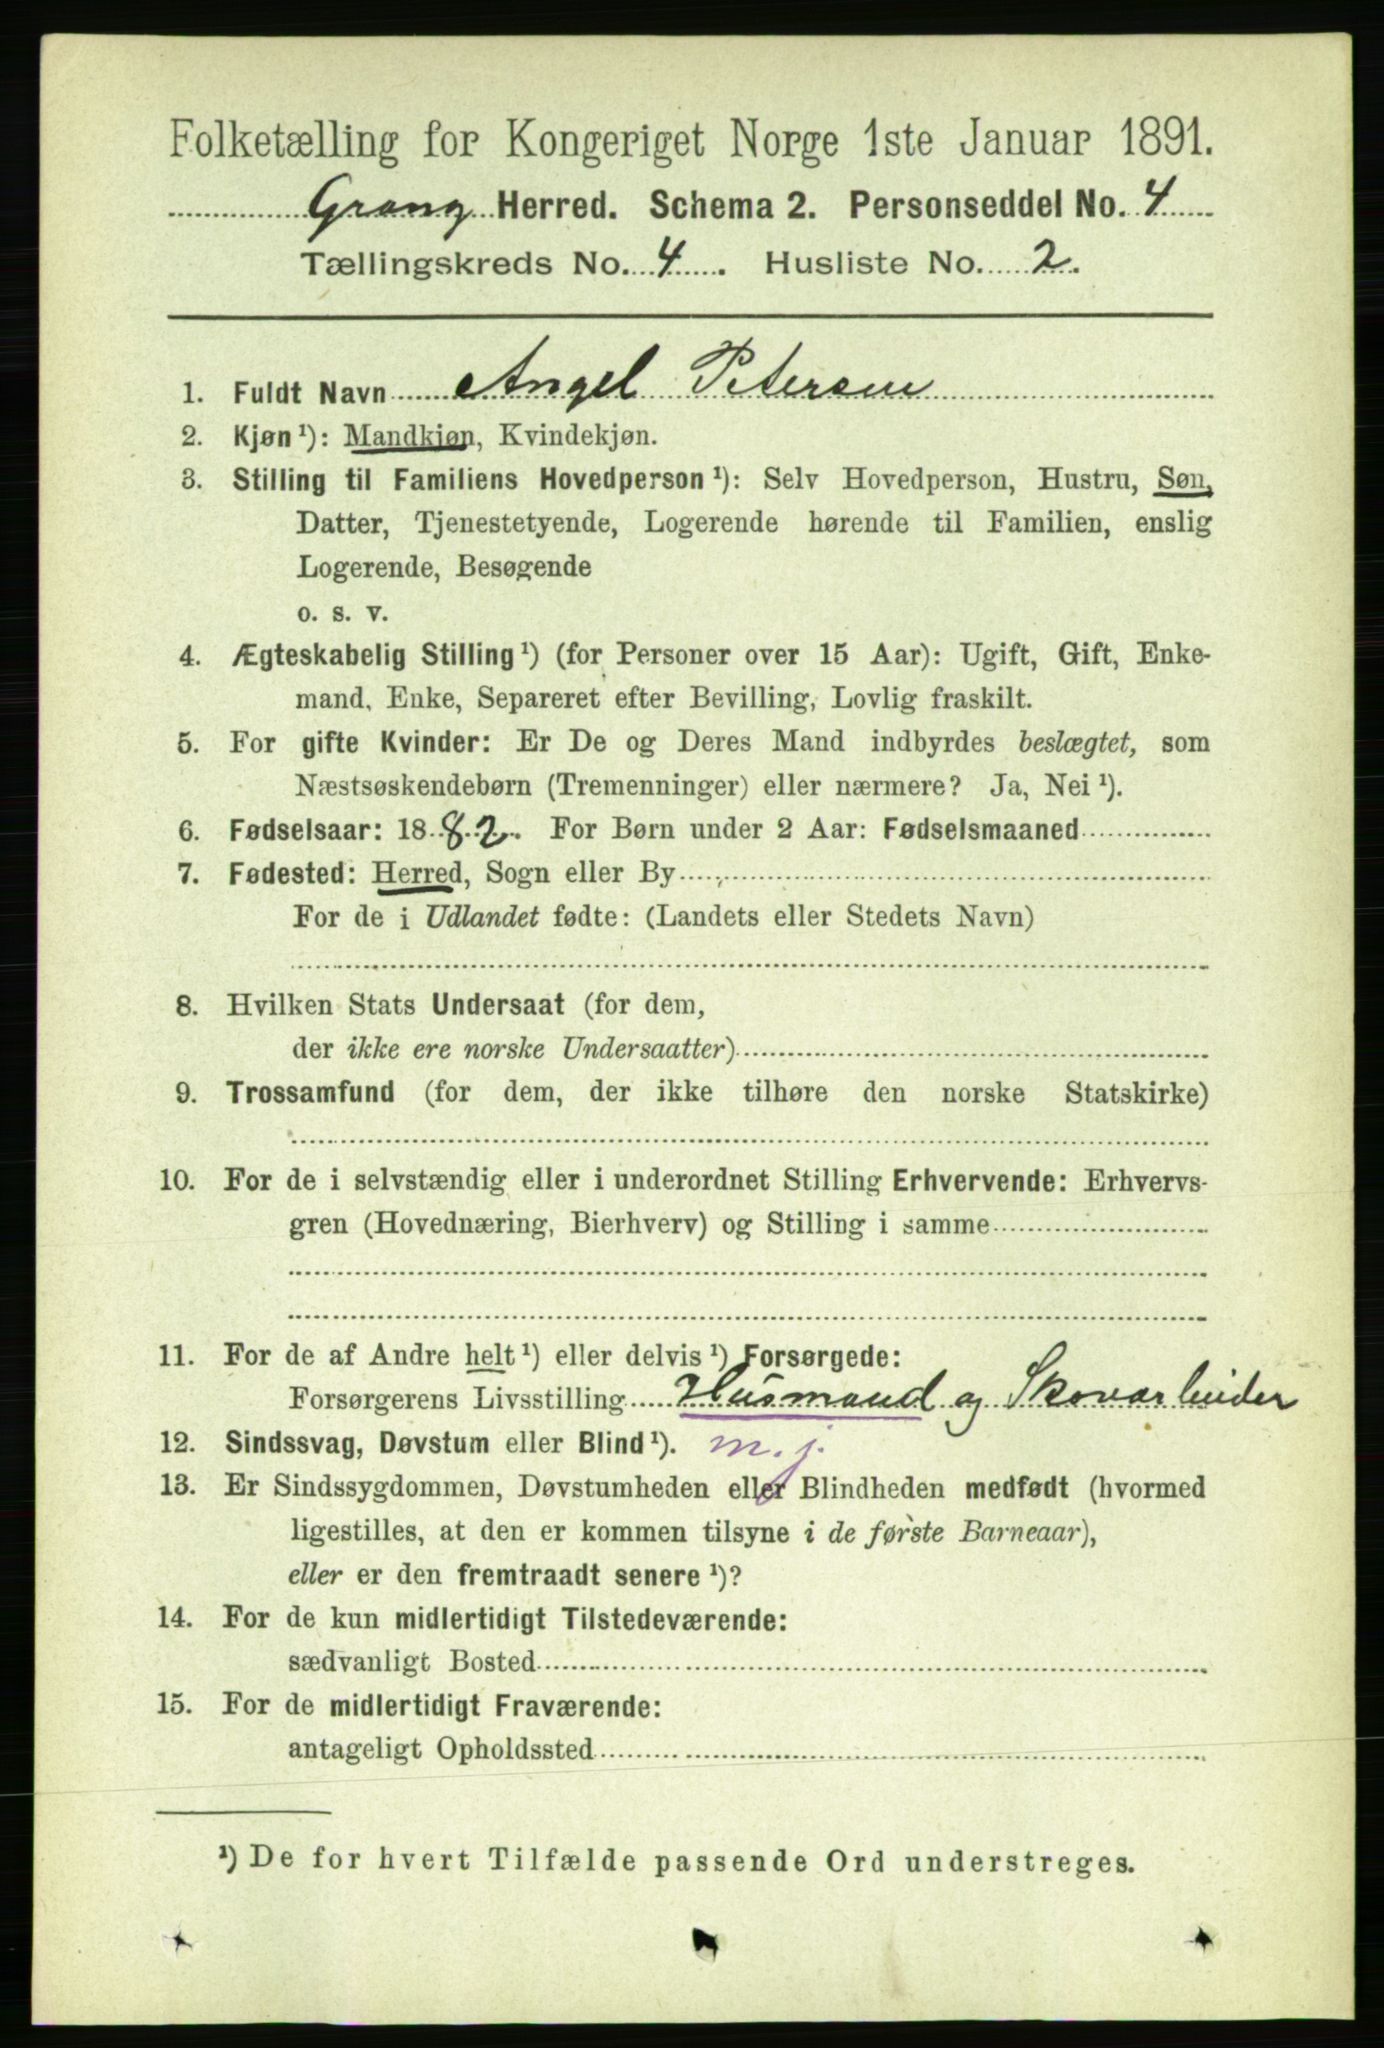 Folketælling for Kongeriget Norge 1ste Januar 1891.
Grong Herred. Schema 2. Personseddel No. 4
Tællingskreds No. 4. Husliste No. 2.
1. Fuldt Navn Angel Petersen
2. Kjøn ¹): Mandkjøn, Kvindekjøn.
3. Stilling til Familiens Hovedperson ¹): Selv Hovedperson, Hustru, Søn,
Datter, Tjenestetyende, Logerende hørende til Familien, enslig
Logerende, Besøgende
o. s. v.
4. Ægteskabelig Stilling ¹) (for Personer over 15 Aar): Ugift, Gift, Enke-
mand, Enke, Separeret efter Bevilling, Lovlig fraskilt.
5. For gifte Kvinder: Er De og Deres Mand indbyrdes beslægtet, som
Næstsøskendebørn (Tremenninger) eller nærmere? Ja, Nei ¹).
6. Fødselsaar: 1882. For Børn under 2 Aar: Fødselsmaaned
7. Fødested: Herred, Sogn eller By
For de i Udlandet fødte: (Landets eller Stedets Navn)
8. Hvilken Stats Undersaat (for dem,
der ikke ere norske Undersaatter)
9. Trossamfund (for dem, der ikke tilhøre den norske Statskirke)
10. For de i selvstændig eller i underordnet Stilling Erhvervende: Erhvervs-
gren (Hovednæring, Bierhverv) og Stilling i samme
11. For de af Andre helt ¹) eller delvis ¹) Forsørgede:
Forsørgerens Livsstilling Husmand og Skovarbeider
12. Sindssvag, Døvstum eller Blind ¹). m. j.
13. Er Sindssygdommen, Døvstumheden eller Blindheden medfødt (hvormed
ligestilles, at den er kommen tilsyne i de første Barneaar),
eller er den fremtraadt senere ¹)?
14. For de kun midlertidigt Tilstedeværende:
sædvanligt Bosted
15. For de midlertidigt Fraværende:
antageligt Opholdssted
¹) De for hvert Tilfælde passende Ord understreges.